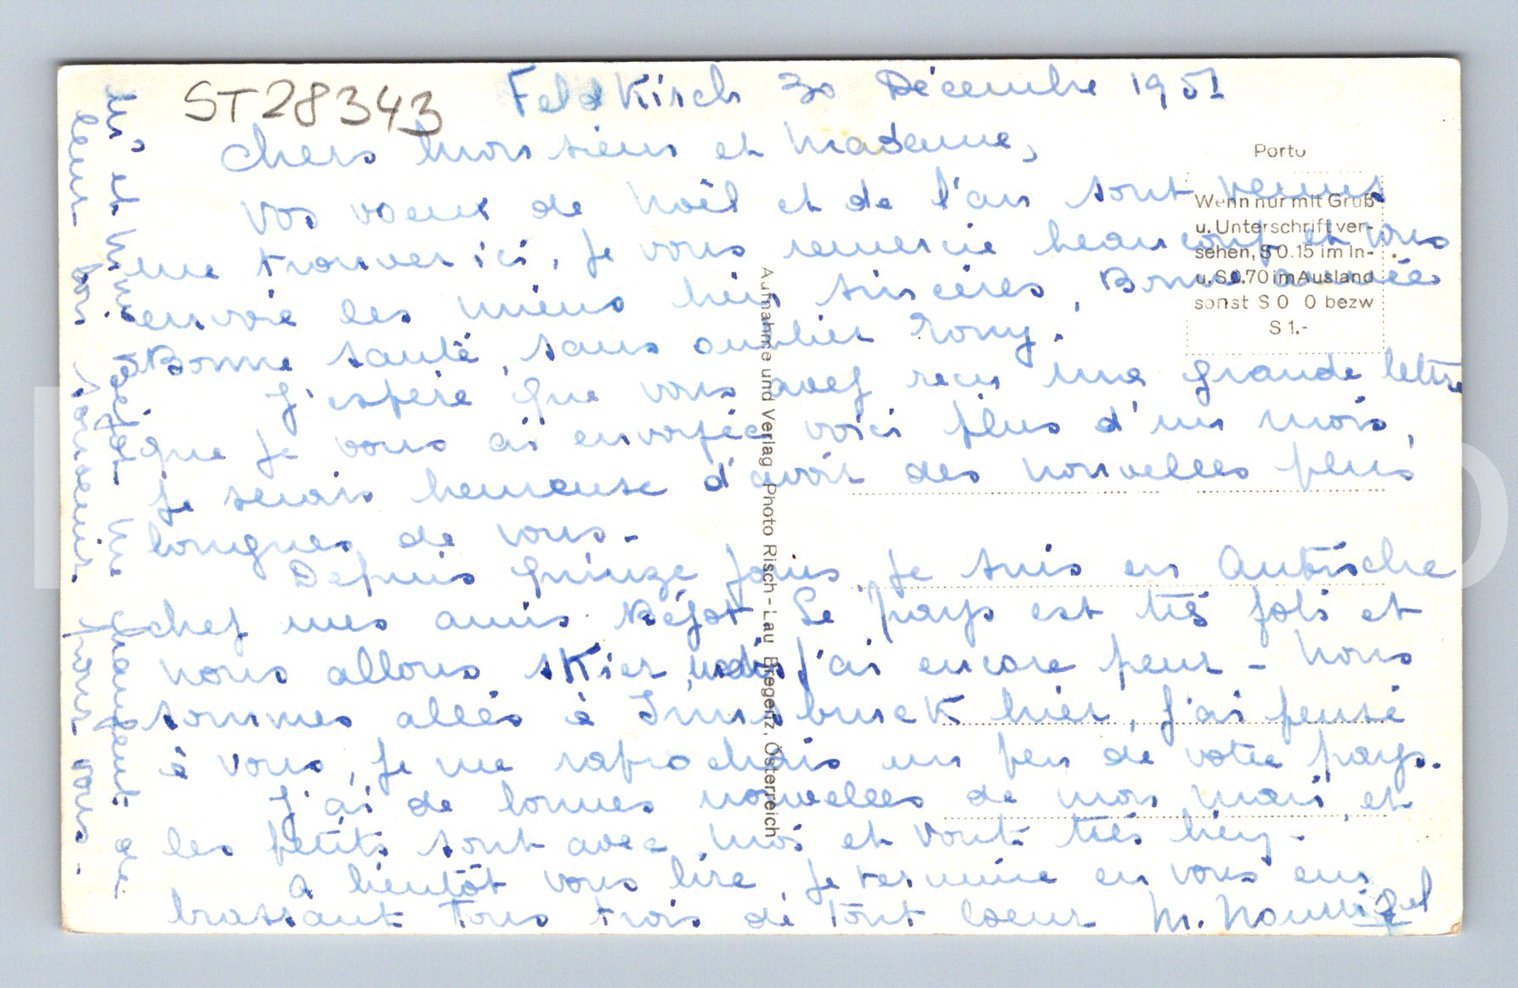 ST28343
Feldkirch 30 Décembre 1951
Chers Monsieur et Madame,
Vos voeux de Noël et de l'an sont venus
me trouver ici, je vous remercie beaucoup et vous
envoie les miens bien sincères, Bonne année
Bonne santé, sans oublier Romy.
J'espère que vous avez reçu une grande lettre
que je vous ai envoyée voici plus d'un mois,
je serais heureuse d'avoir des nouvelles plus
longues de vous.
Depuis quinze jours, je suis en Autriche
chez mes amis Béjot. Le pays est très joli et
nous allons skier, mais j'ai encore peur - Nous
sommes allés à Innsbruck hier, j'ai pensé
à vous, je me raprochais un peu de votre pays.
J'ai de bonnes nouvelles de mon mari, et
les petits sont avec moi et vont très bien -
A bientôt vous lire, je termine en vous em
brassant tous trois de tout coeur M.
Mr et Mme Béjot me chargent de
leur bon souvenir pour vous.
Porto
Wenn nur mit Gruß
u. Unterschrift ver-
sehen, S 0.15 im In-
u. S 0.70 im Ausland
sonst S 0 0 bezw
S 1.-
Aufnahme und Verlag Photo Risch-Lau Bregenz, Österreich